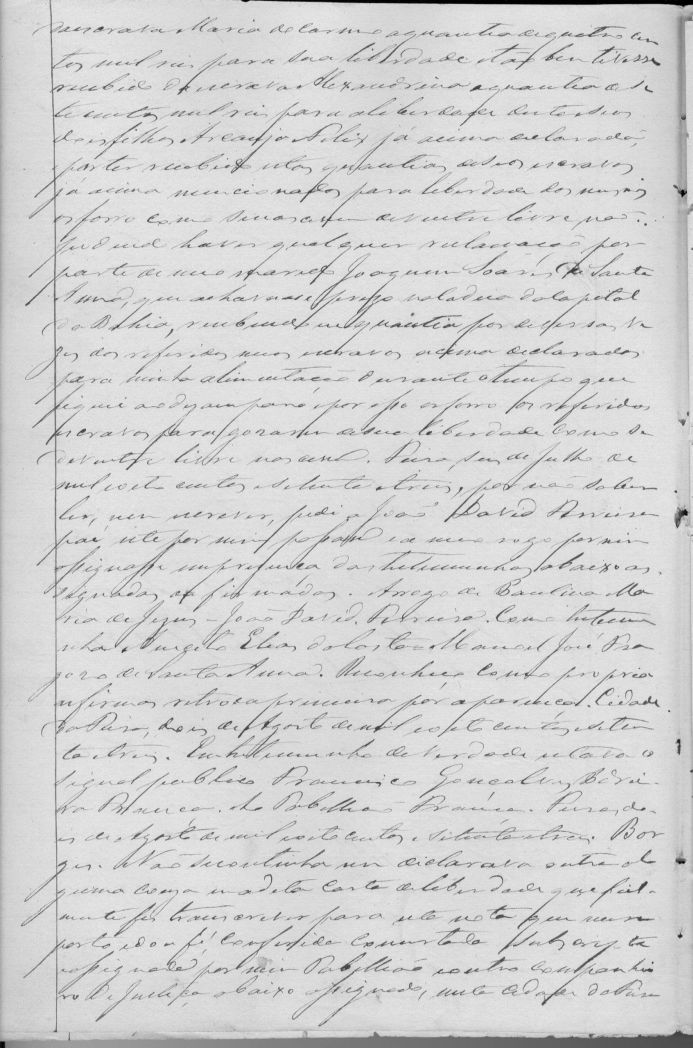 da escrava Maria do Carmo a quantia de quatro cen
tos mil reis para sua liberdade e tão bem ti
recebido da escrava Alexandrina a quantia de se
te centos mil reis para a liberdade de seos
dois filhos Arcanjo e Felix já acima declarados,
e por ter recebido estas quantias de seos escravos
já acima mencionados para liberdade dos mesmos
os forro como se nascessem de ventre livre não
pudendo haver qualquer reclamação por
parte de meo marido Joaquim Soares de Santa
Anna, que acha-se preso na Cadeia da Capital
da Bahia, recebendo eu quantia por diversas ve
zes dos referidos meos escravos acima declarados
para minha alimentação durante o tempo que
fiquei ao desamparo e por isso os forro os referidos
escravos para gozarem de sua liberdade como se
de ventre livre nascem. Purs, seis de Julho de
mil oito centos e setenta e tres, por não saber
ler, nem escrever, pedi a João David Ferreira
que este por mim passasse e a meo rogo por mim
assignasse em presença das testemunhas abaixo as
signadas e firmadas. Arogo de Paulina Ma
ria de Jesus - João David Ferreira. Como testemu
nha Aniceto Elias da Costa - Manoel José Fra
goso de Santa Anna. Reconheço como proprias
as firmas retro e a primeira por a parecer. Cidade
do Purs, dois de Agosto de mil oito centos e seten
ta e tres. Em testemunho de verdade estava o
signal publico Francisco Gonçalves
França. O Tabellião França. Purs, do
is de Agosto de mil oito centos e setenta e tres. Bor
ges. Não se continha nem declarava outra al
guma cousa em a dita carta de liberdade que fiel
mente fiz transcrever para esta nota que me re
porto, e dou fé, conferida e concertada subscripta
e assignada por mim Tabellião e outro companhei
ro de Justiça abaixo assignado, nesta Cidade do Purs